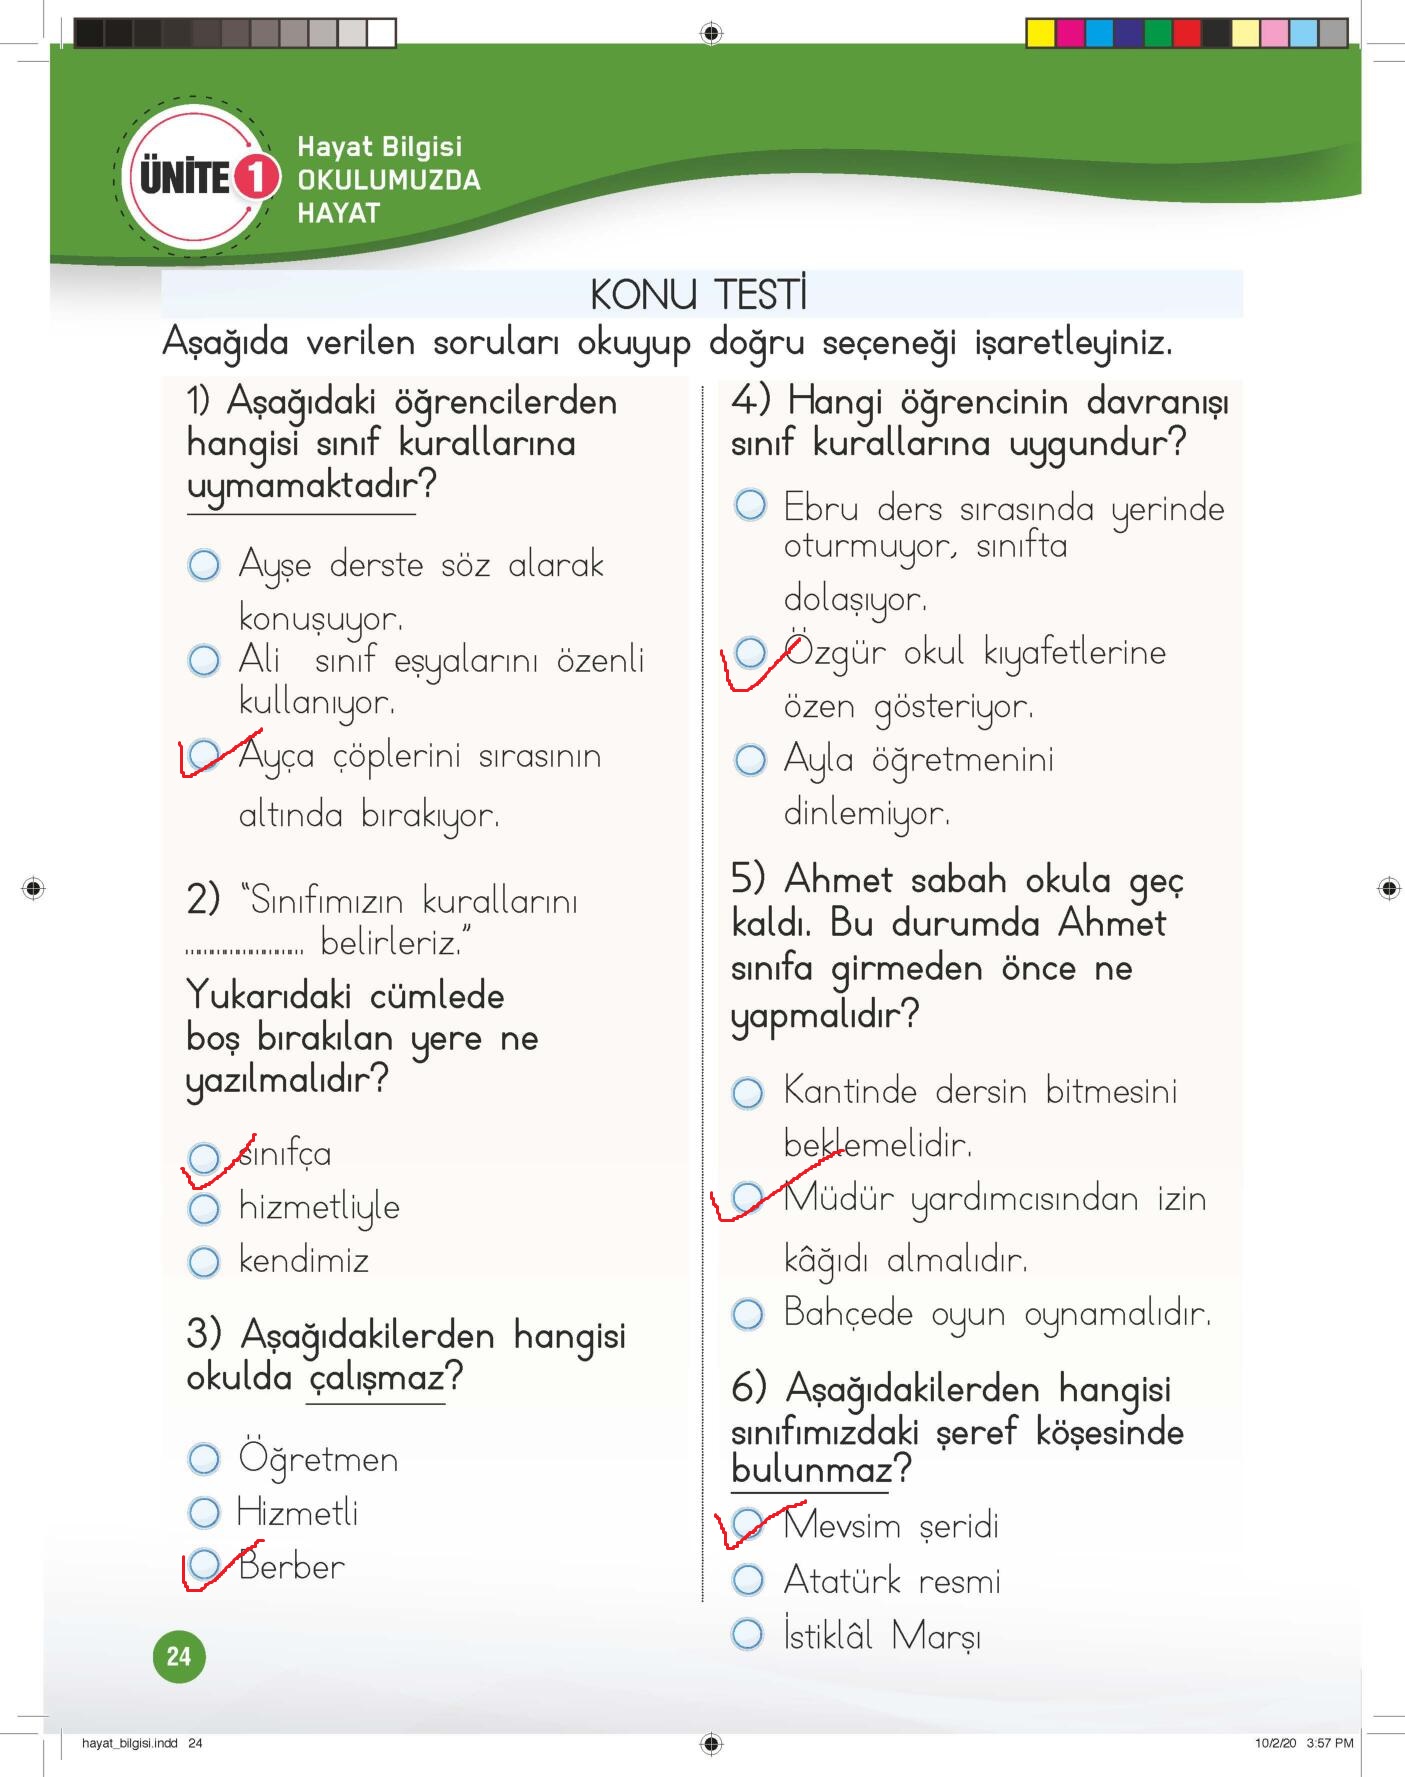 ÜNİTE 1
Hayat Bilgisi
OKULUMUZDA
HAYAT
KONU TESTİ
Aşağıda verilen soruları okuyup doğru seçeneği işaretleyiniz.
1) Aşağıdaki öğrencilerden
hangisi sınıf kurallarına
uymamaktadır?
Ayşe derste söz alarak
konuşuyor.
Ali sınıf eşyalarını özenli
kullanıyor.
Ayça çöplerini sırasının
altında bırakıyor.
2) “Sınıfımızın kurallarını
.................... belirleriz.”
Yukarıdaki cümlede
boş bırakılan yere ne
yazılmalıdır?
sınıfça
hizmetliyle
kendimiz
3) Aşağıdakilerden hangisi
okulda çalışmaz?
Öğretmen
Hizmetli
Berber
4) Hangi öğrencinin davranışı
sınıf kurallarına uygundur?
Ebru ders sırasında yerinde
oturmuyor, sınıfta
dolaşıyor.
Özgür okul kıyafetlerine
özen gösteriyor.
Ayla öğretmenini
dinlemiyor.
5) Ahmet sabah okula geç
kaldı. Bu durumda Ahmet
sınıfa girmeden önce ne
yapmalıdır?
Kantinde dersin bitmesini
beklemelidir.
Müdür yardımcısından izin
kâğıdı almalıdır.
Bahçede oyun oynamalıdır.
6) Aşağıdakilerden hangisi
sınıfımızdaki şeref köşesinde
bulunmaz?
Mevsim şeridi
Atatürk resmi
İstiklâl Marşı
24
hayat_bilgisi.indd 24
10/2/20 3:57 PM